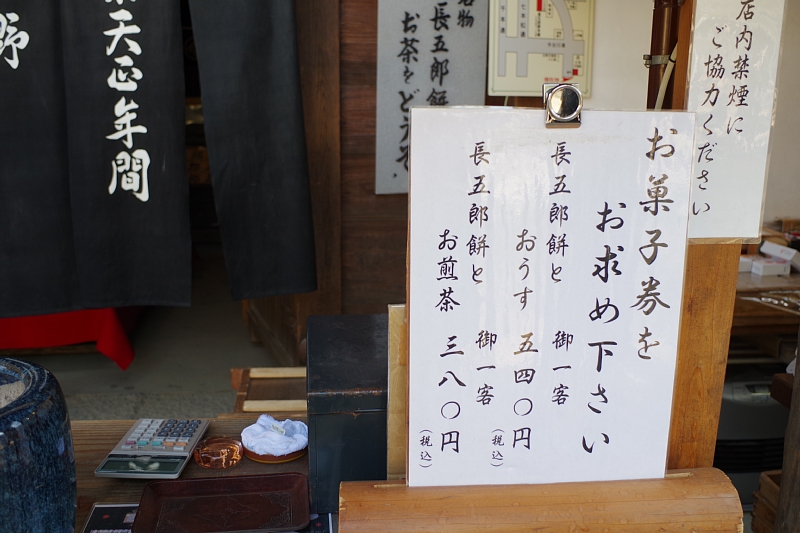 お菓子券を
お求め下さい
長五郎餅と 御一客
おうす 五四〇円
(税込)
長五郎餅と 御一客
お煎茶 三八〇円
(税込)
店内禁煙に
ご協力ください
名物
長五郎餅
お茶をどうぞ
天正年間
野